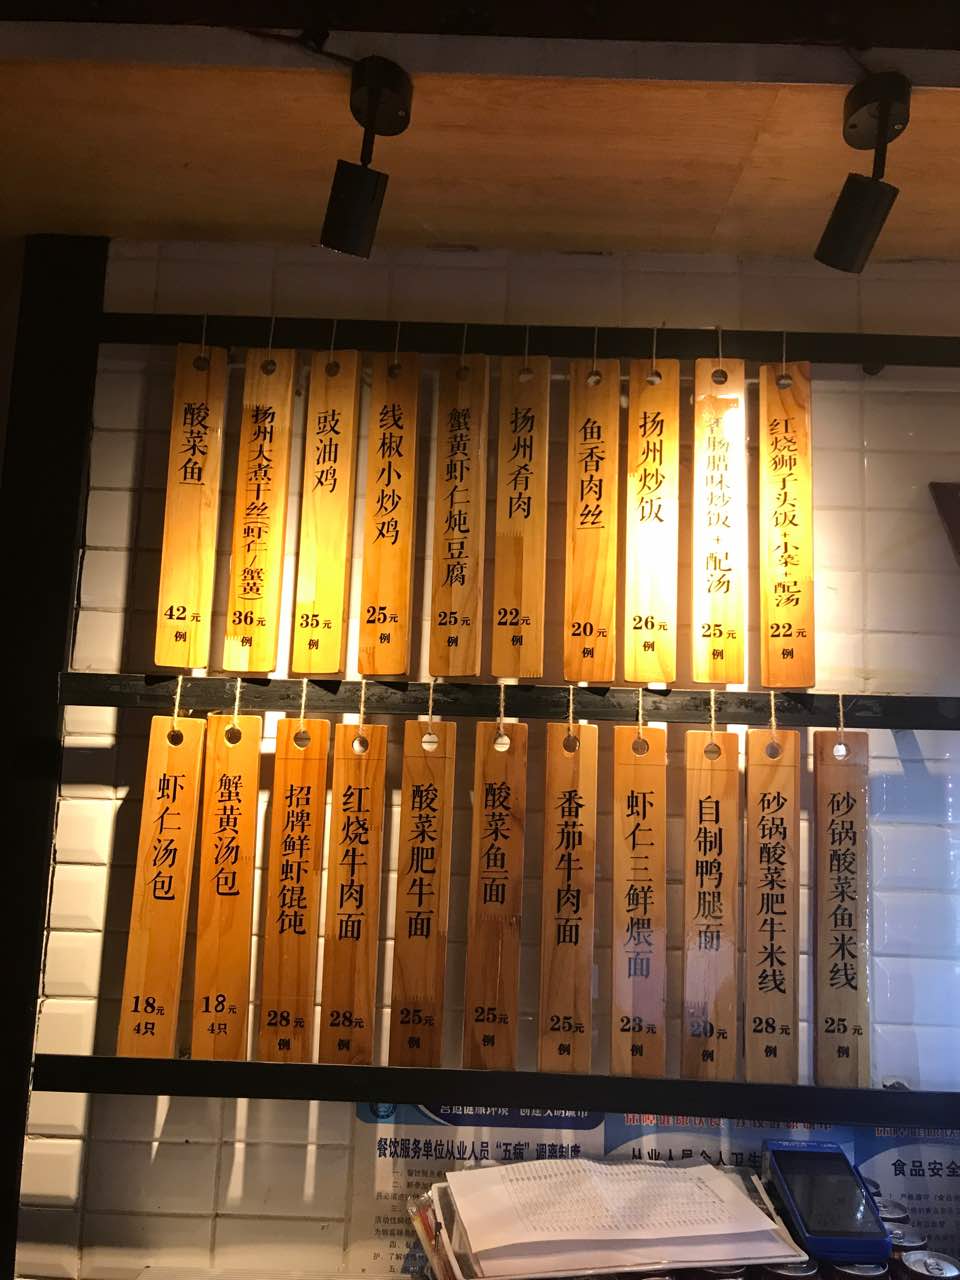 酸菜鱼
42元
例
扬州大煮干丝(虾仁/蟹黄)
36元
例
豉油鸡
35元
例
线椒小炒鸡
25元
例
蟹黄虾仁炖豆腐
25元
例
扬州肴肉
22元
例
鱼香肉丝
20元
例
扬州炒饭
26元
例
肠腊味炒饭+配汤
25元
例
红烧狮子头饭+小菜+配汤
22元
例
虾仁汤包
18元
4只
蟹黄汤包
18元
4只
招牌鲜虾馄饨
28元
例
红烧牛肉面
28元
例
酸菜肥牛面
25元
例
酸菜鱼面
25元
例
番茄牛肉面
25元
例
虾仁三鲜煨面
23元
例
自制鸭腿面
20元
例
砂锅酸菜肥牛米线
28元
例
砂锅酸菜鱼米线
25元
例
营造健康环境 创建文明城市
餐饮服务单位从业人员“五病”调离制度
从业人员个人卫生
食品安全